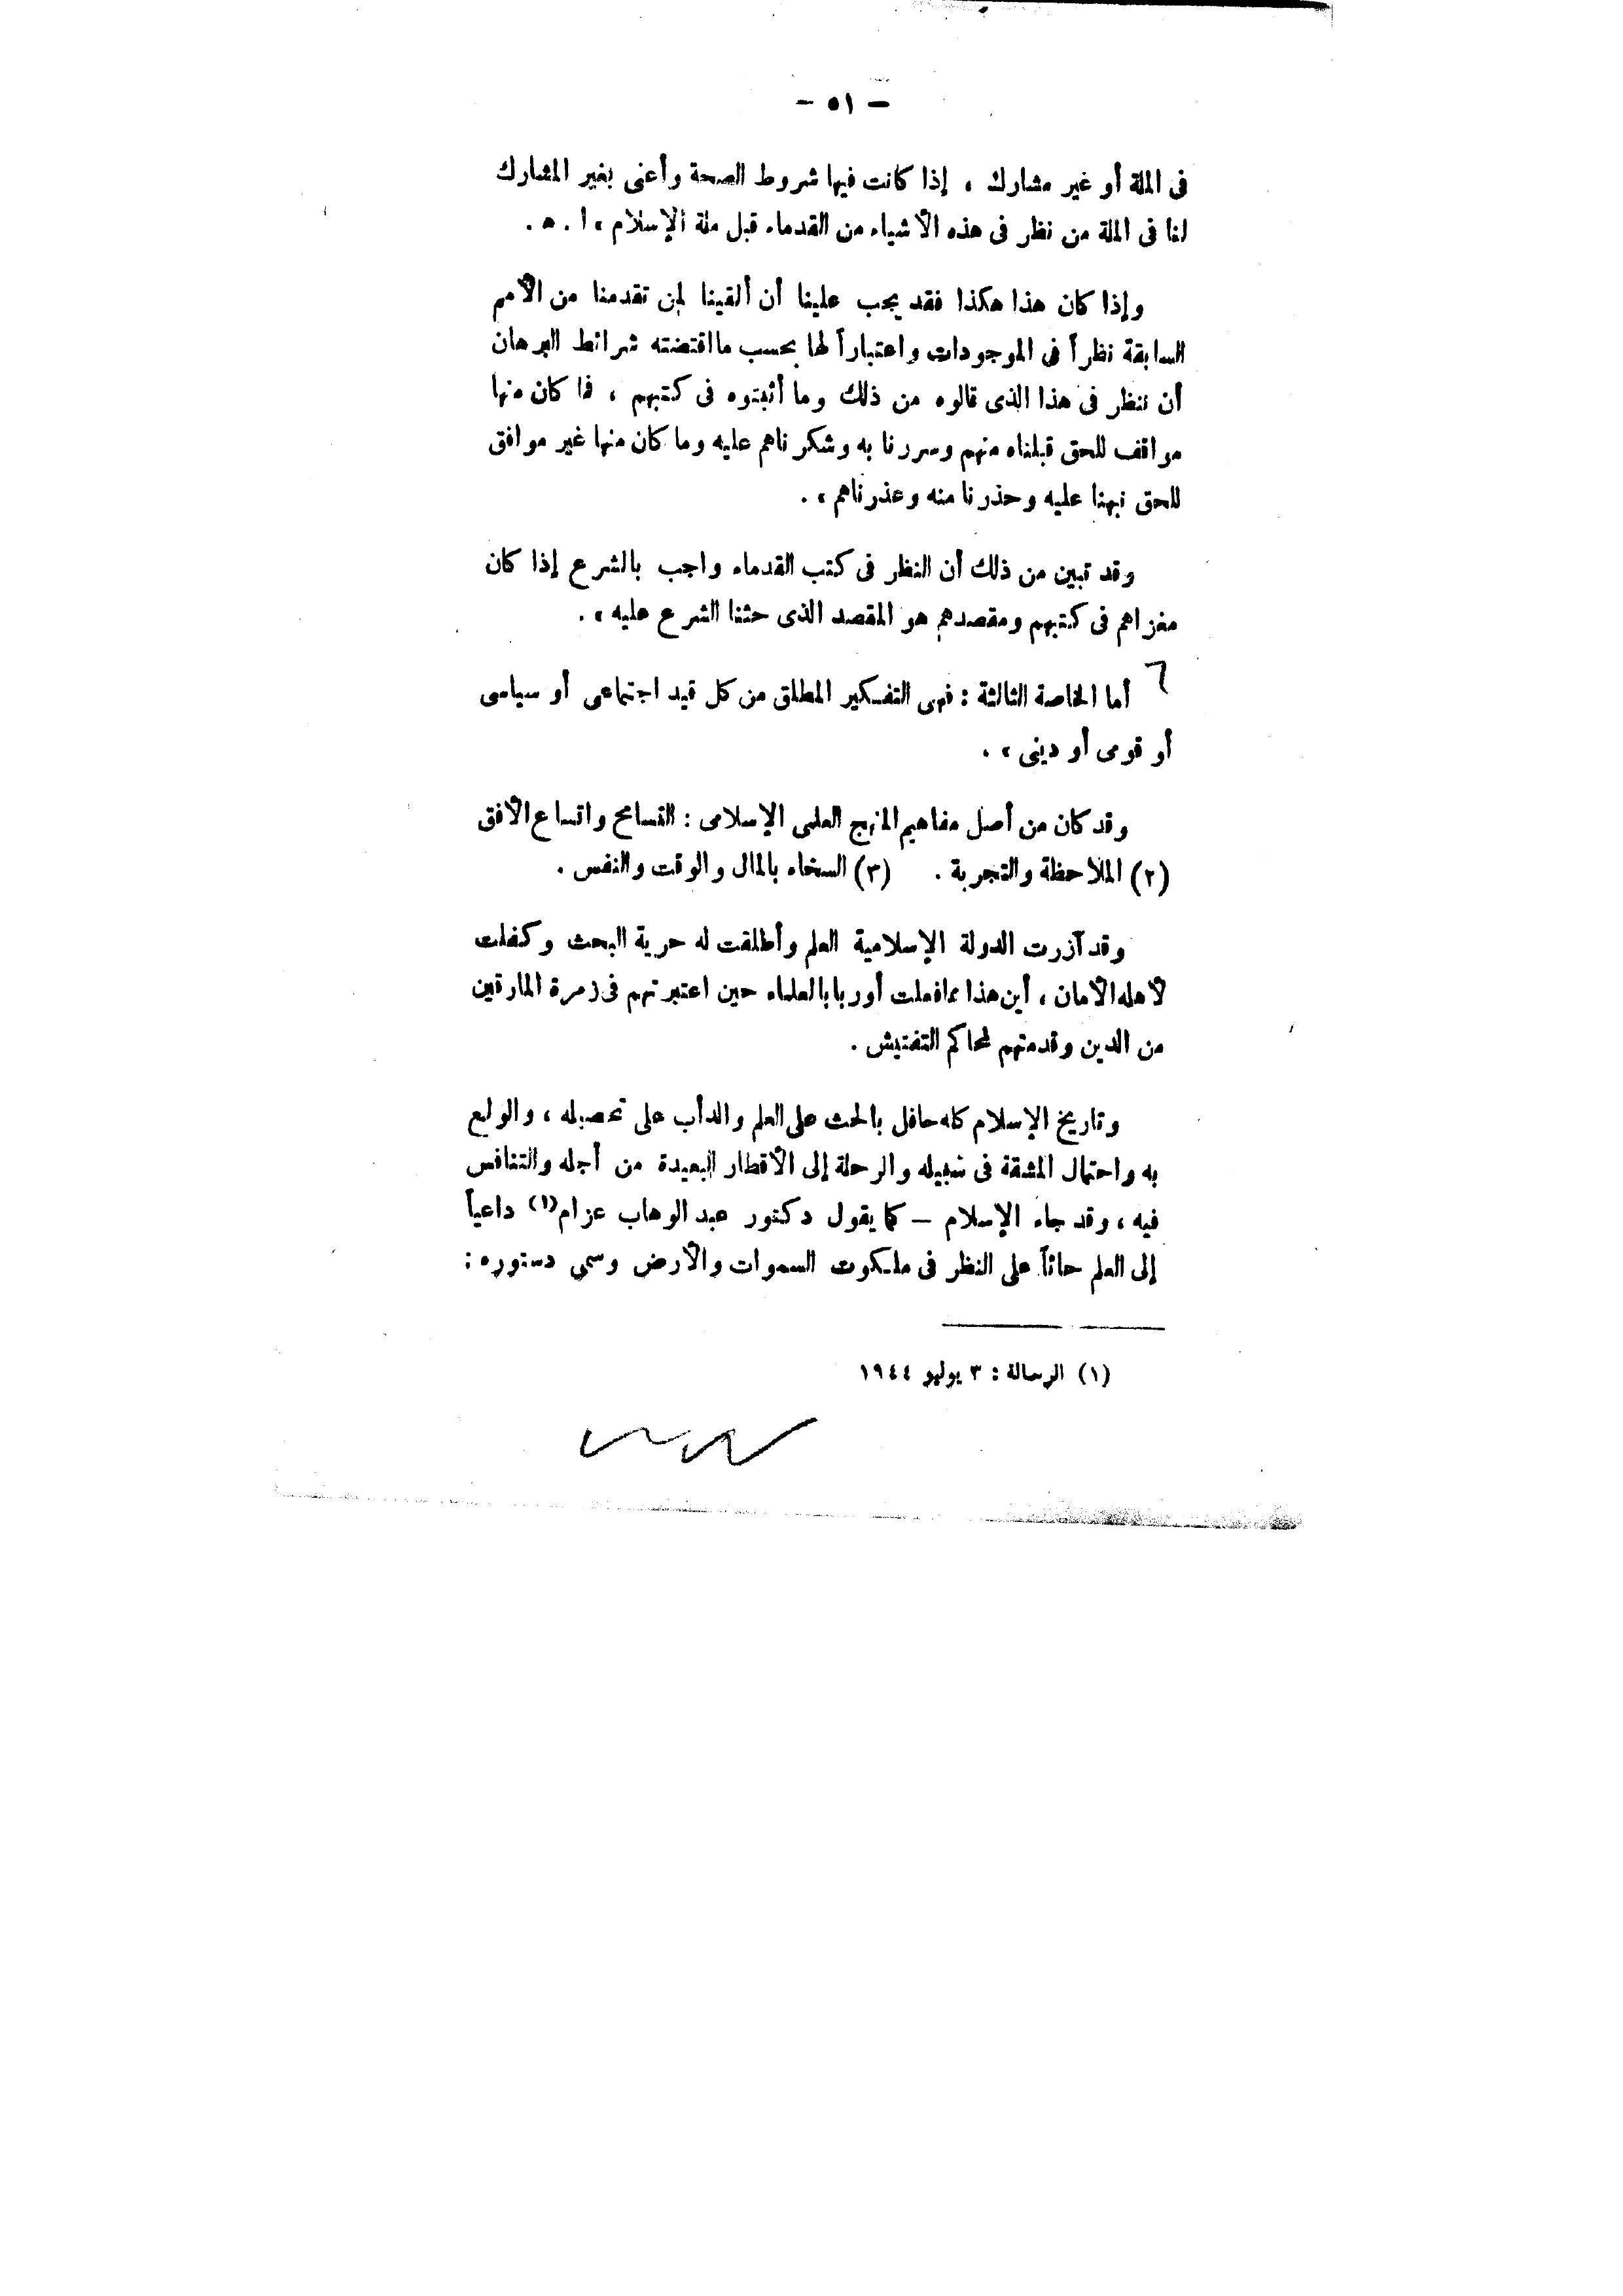 — ٥١ —
فى الملة أو غير مشارك ، إذا كانت فيها شروط الصحة وأعنى بغير المشارك
لنا فى الملة من نظر فى هذه الأشياء من القدماء قبل ملة الإسلام » ا . ه .
وإذا كان هذا هكذا فقد يجب علينا أن ألقينا لمن تقدمنا من الأمم
السابقة نظراً فى الموجودات واعتباراً لها بحسب ما اقتضته شرائط البرهان
أن ننظر فى هذا الذى قالوه من ذلك وما أثبتوه فى كتبهم ، فما كان منها
موافف للحق قبلناه منهم وسررنا به وشكرناهم عليه وما كان منها غير موافق
للحق نبهنا عليه وحذرنا منه وعذرناهم » .
وقد تبين من ذلك أن النظر فى كتب القدماء واجب بالشرع إذا كان
مغزاهم فى كتبهم ومقصدهم هو المقصد الذى حثنا الشرع عليه » .
أما الخاصة الثالثة : فهى التفكير المطلق من كل قيد اجتماعى أو سياسى
أو قومى أو دينى » .
وقد كان من أصل مفاهيم المنهج العلمى الإسلامى : التسامح واتساع الأفق
(٢) الملاحظة والتجربة . (٣) السخاء بالمال والوقت والنفس .
وقد آزرت الدولة الإسلامية العلم وأطلقت له حرية البحث وكفلت
لأهله الأمان ، أين هذا مما فعلت أوربا بالعلماء حين اعتبرتهم فى زمرة المارقين
من الدين وقدمتهم لمحاكم التفتيش .
وتاريخ الإسلام كله حافل بالحث على العلم والدأب على تحصيله ، والولع
به واحتمال المشقة فى سبيله والرحلة إلى الأقطار البعيدة من أجله والتنافس
فيه ، وقد جاء الإسلام — كما يقول دكتور عبد الوهاب عزام (١) داعياً
إلى العلم حاثاً على النظر فى ملكوت السموات والأرض وسمى دستوره :
(١) الرسالة : ٣ يوليو ١٩٤٤